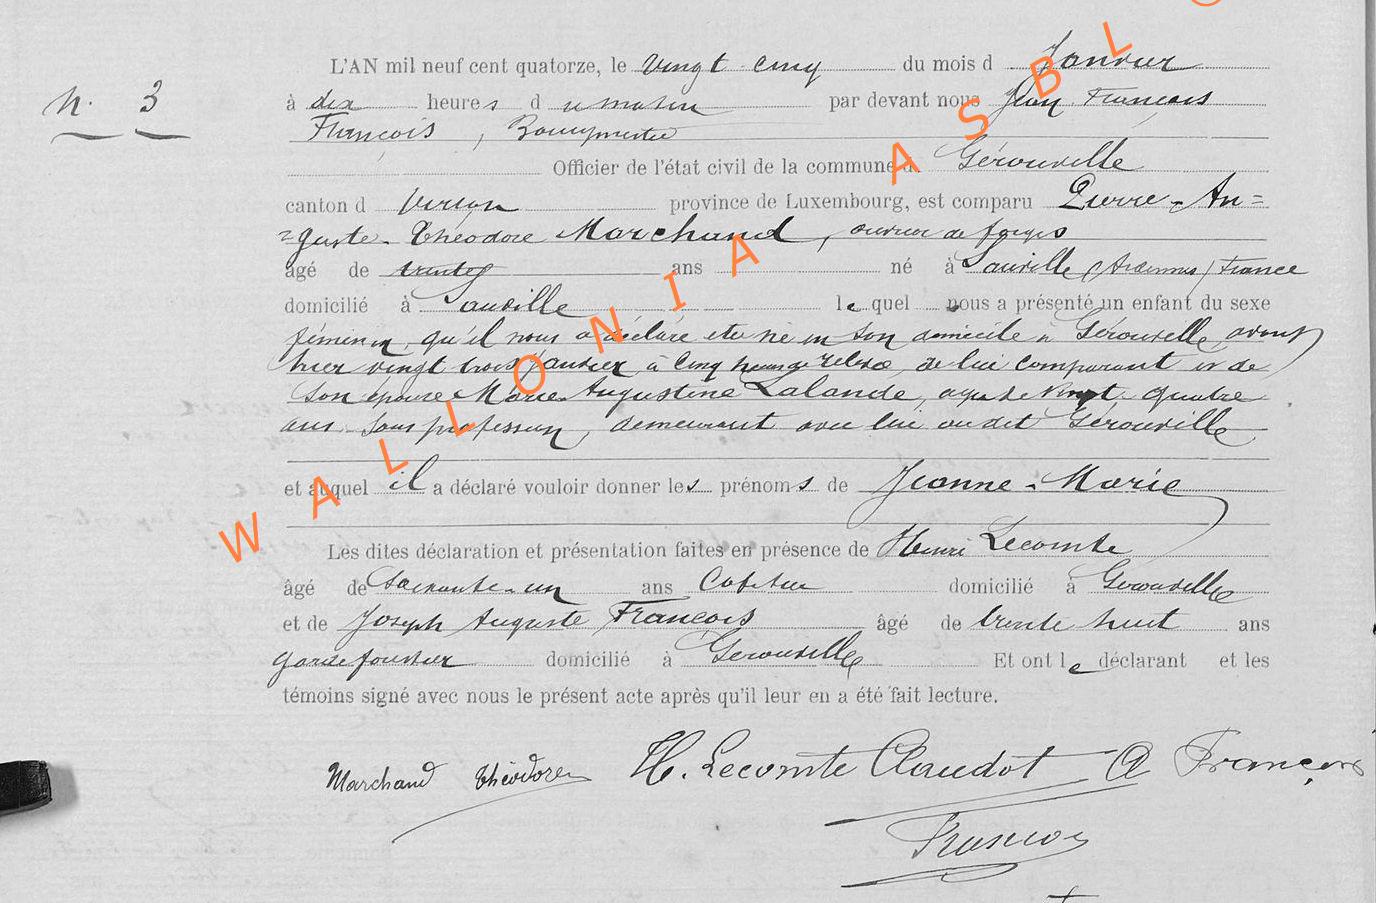 L'AN mil neuf cent quatorze, le vingt cinq du mois d Janvier
N. 3
à dix heures du matin par devant nous Jean François
François, Bourgmestre
Officier de l'état civil de la commune d Gérouville
canton d Virton province de Luxembourg, est comparu Pierre-Au=
=guste-Théodore Marchand, ouvrier de forges
âgé de trente ans né à Sauville (Ardennes) France
domicilié à Sauville lequel nous a présenté un enfant du sexe
féminin, qu'il nous a déclaré être né en son domicile à Gérouville avant
hier vingt trois janvier, à cinq heures de relevée, de lui comparant et de
son épouse Marie Augustine Lalande, agée de vingt quatre
ans sans profession, demeurant avec lui au dit Gérouville
et auquel il a déclaré vouloir donner les prénoms de Jeanne-Marie
Les dites déclaration et présentation faites en présence de Henri Lecomte
âgé de Soixante-un ans domicilié à Gérouville
et de Joseph Auguste François âgé de trente huit ans
garde forestier domicilié à Gérouville Et ont le déclarant et les
témoins signé avec nous le présent acte après qu'il leur en a été fait lecture.
Marchand Théodore H. Lecomte Claudot A François
François
WALLONIA ASBL